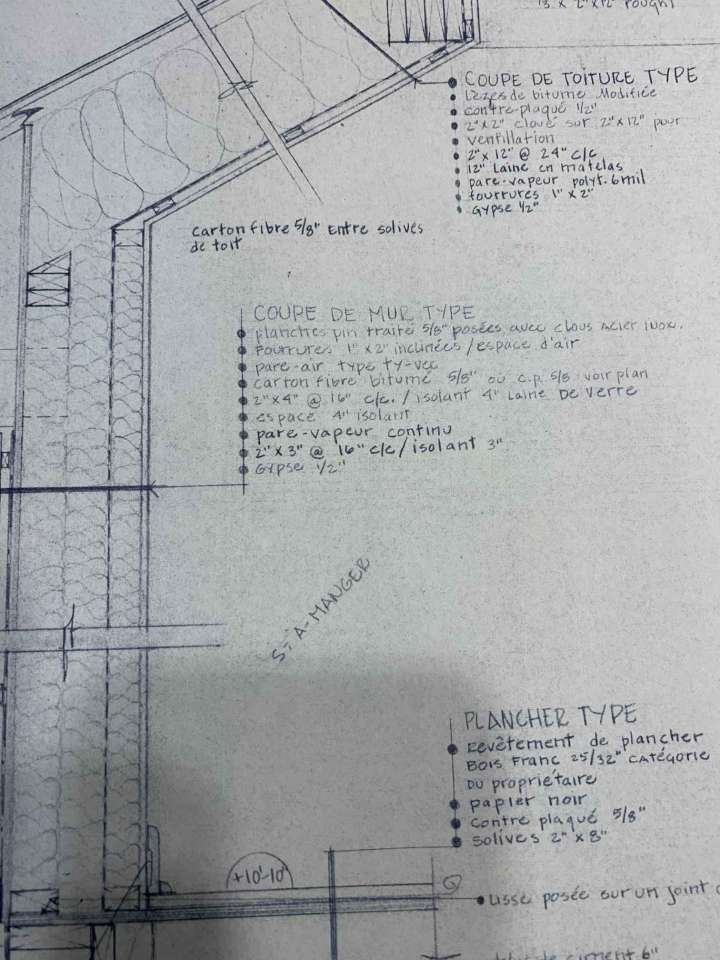 13 x 2"x12" rough
COUPE DE TOITURE TYPE
Lèzes de bitume Modifiée
contre-plaqué 1/2"
2"x2" cloué sur 2"x12" pour
ventillation
2"x 12" @ 24" c/c
12" Laine en matelas
pare-vapeur polyt. 6mil
fourrures 1" x 2"
Gypse 1/2"
carton fibre 5/8" Entre solives
de toit
COUPE DE MUR TYPE
planches pin traité 5/8" posées avec clous Acier inox.
Fourrures 1"x2" inclinées/espace d'air
pare-air type ty-vec
carton fibre bitumé 5/8" ou c.p. 5/8 voir plan
2"x4" @ 16" c/c. / isolant 4" Laine De verre
espace 4" isolant
pare-vapeur continu
2"x3" @ 16" c/c/isolant 3"
Gypse 1/2"
S-A-MANGER
PLANCHER TYPE
Revêtement de plancher
BOIS Franc 25/32" CATÉGORIE
DU propriétaire
papier noir
contre plaqué 5/8"
solives 2" x 8"
+10'-10"
Lisse posée sur un joint
de ciment 6"